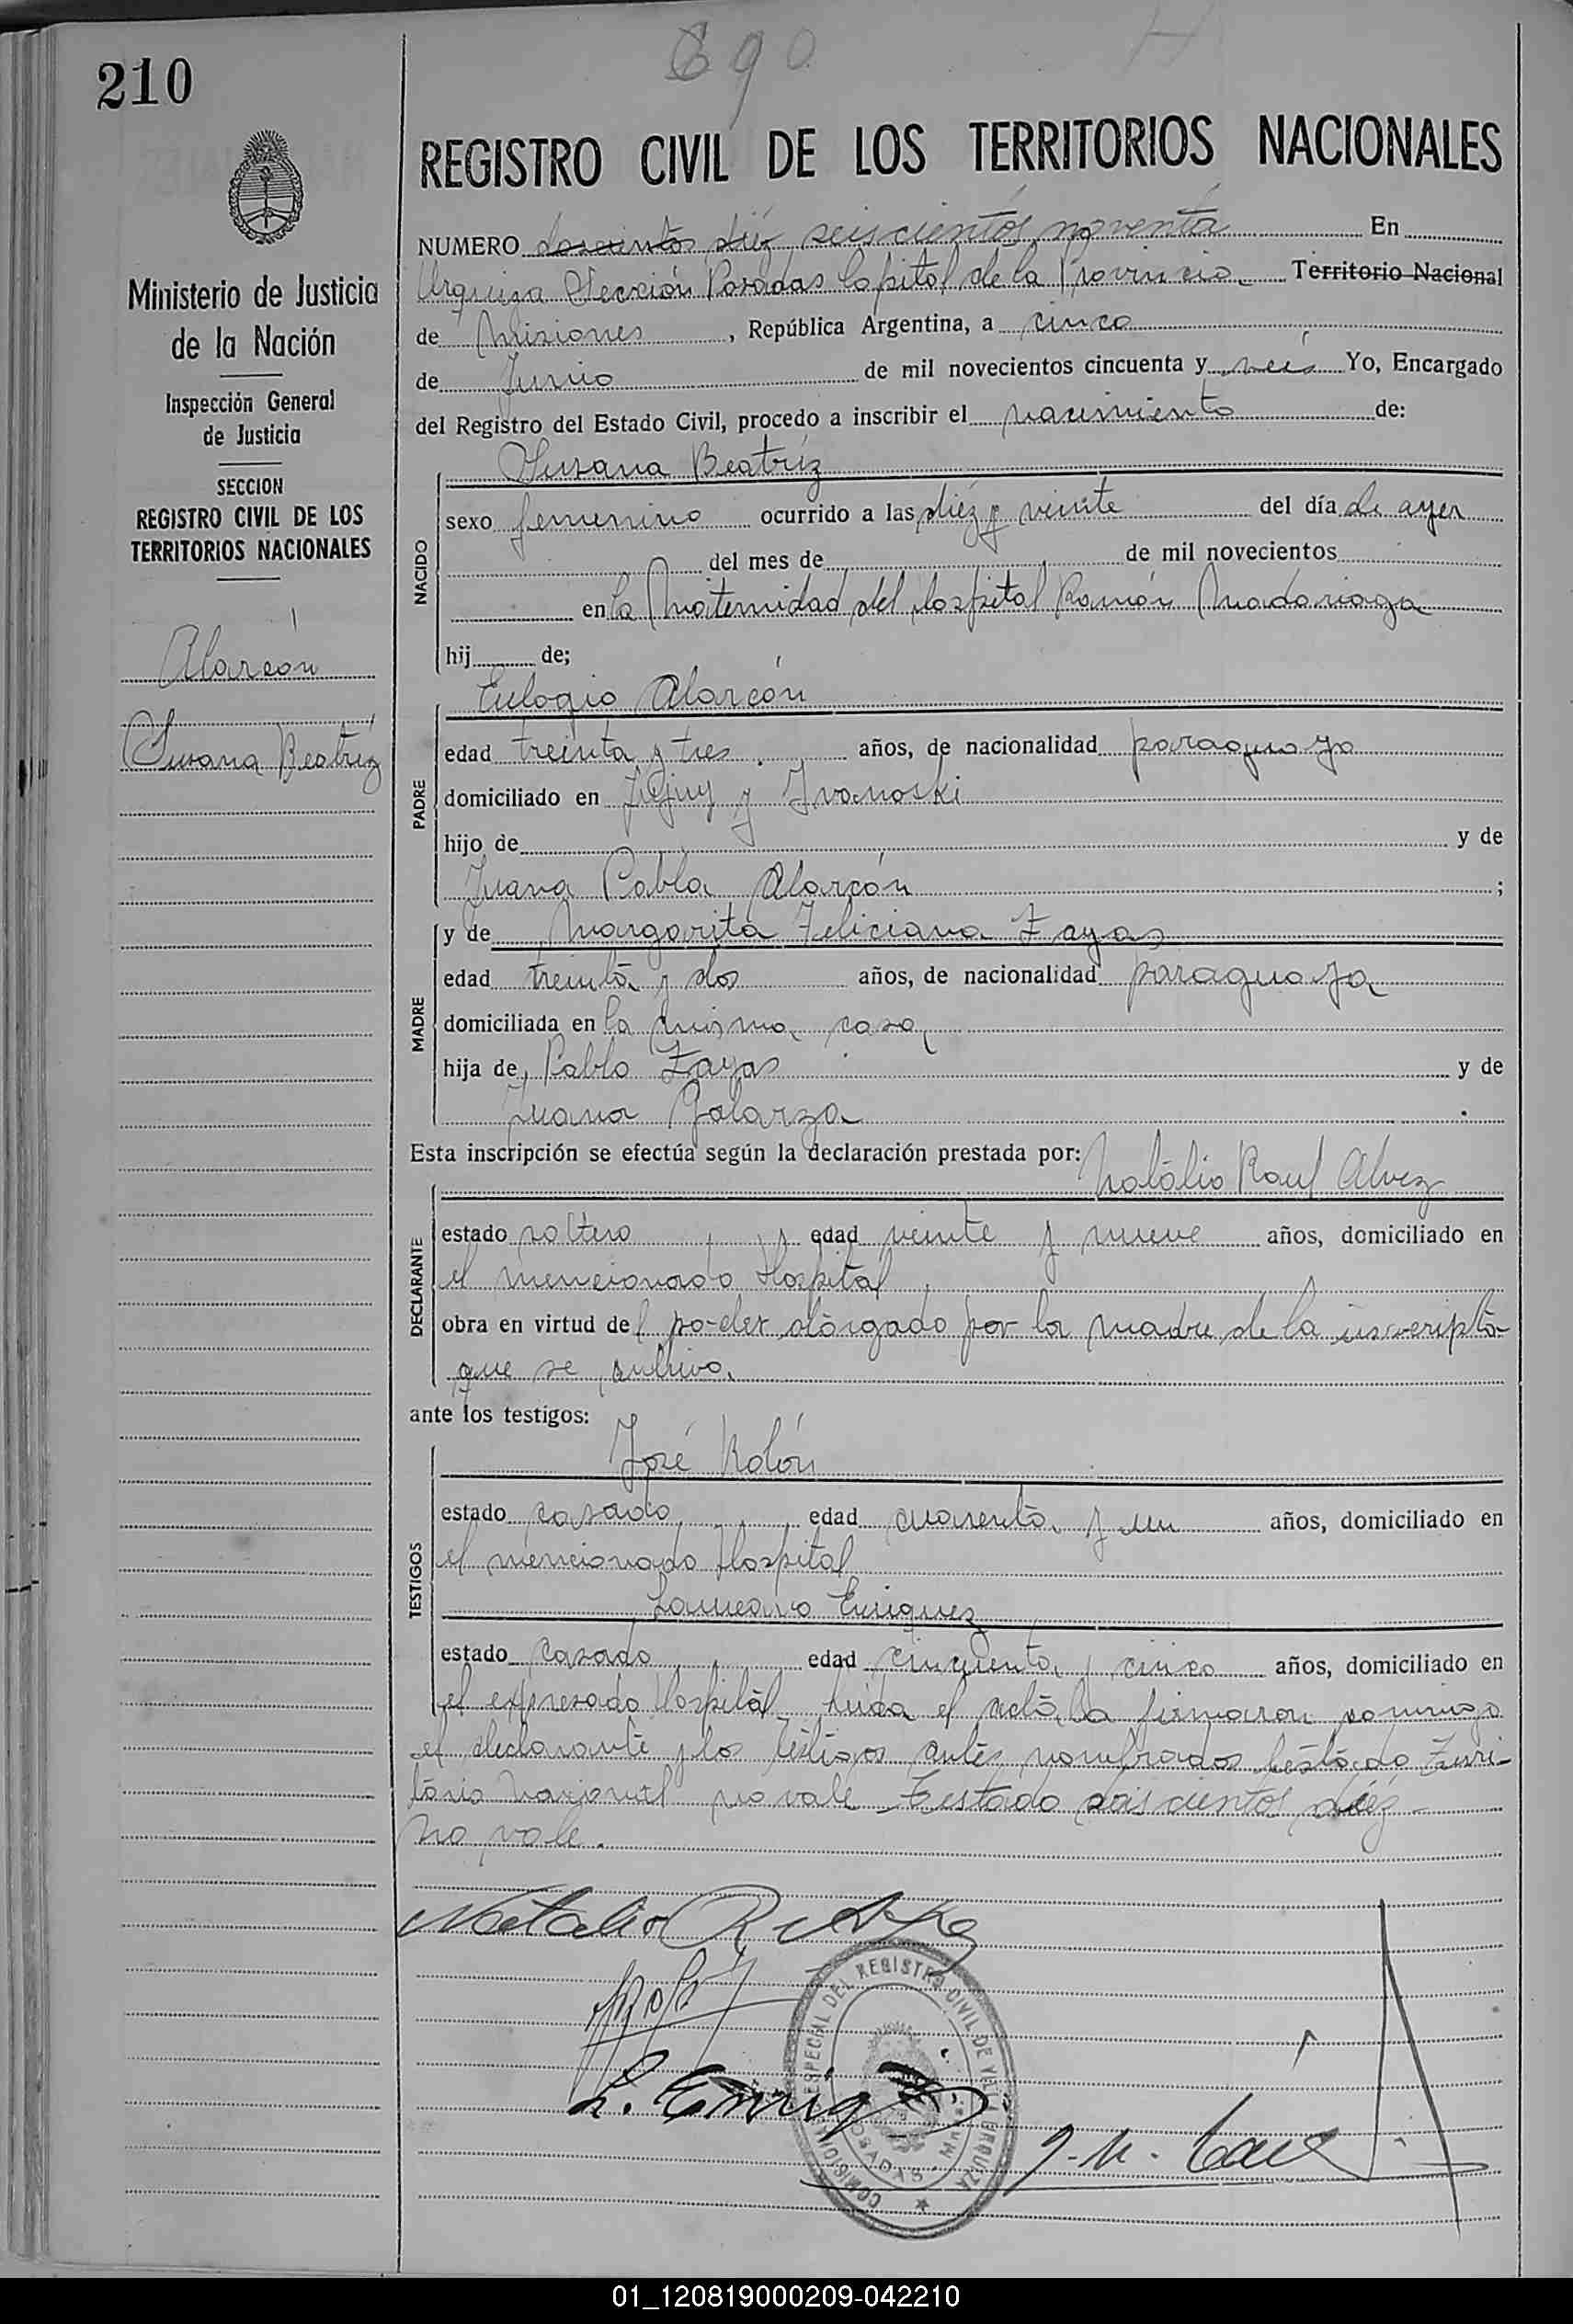 690
210
REGISTRO CIVIL DE LOS TERRITORIOS NACIONALES
NUMERO doscientos diéz seiscientos noventa En
Urquiza Sección Posadas Capital de la Provincia Territorio Nacional
de Misiones, República Argentina, a cinco
de Junio de mil novecientos cincuenta y seis Yo, Encargado
del Registro del Estado Civil, procedo a inscribir el nacimiento de:
Ministerio de Justicia
de la Nación
Inspección General
de Justicia
SECCION
REGISTRO CIVIL DE LOS
TERRITORIOS NACIONALES
Alarcón
Susana Beatríz
NACIDO
Susana Beatríz
sexo femenino ocurrido a las diéz y veinte del día de ayer
del mes de de mil novecientos
en la Maternidad del Hospital Ramón Madariaga
hij de;
PADRE
Eulogio Alarcón
edad treinta y tres años, de nacionalidad paraguaya
domiciliado en Jujuy y Ivanoski
hijo de y de
Juana Pabla Alarcón ;
MADRE
y de Margarita Feliciana Zayas
edad treinta y dos años, de nacionalidad paraguaya
domiciliada en la misma casa
hija de Pablo Zayas y de
Juana Galarza .
Esta inscripción se efectúa según la declaración prestada por: Natálio Raul Alvez
DECLARANTE
estado soltero edad veinte y nueve años, domiciliado en
el mencionado Hospital
obra en virtud del poder otorgado por la madre de la inscripta
que se archivo.
ante los testigos:
TESTIGOS
José Rolón
estado casado edad cuarenta y un años, domiciliado en
el mencionado Hospital
Enriquez
estado casado edad cincuenta y cinco años, domiciliado en
el expresado Hospital Leída el acta, la firmaron conmigo
el declarante y los testigos antes nombrados Testado Terri-
torio Nacional no vale Testado doscientos diéz
no vale.
Natalio R
L. Enriquez
COMISION ESPECIAL DEL REGISTRO CIVIL DE VILLA URQUIZA
POSADAS
01_120819000209-042210